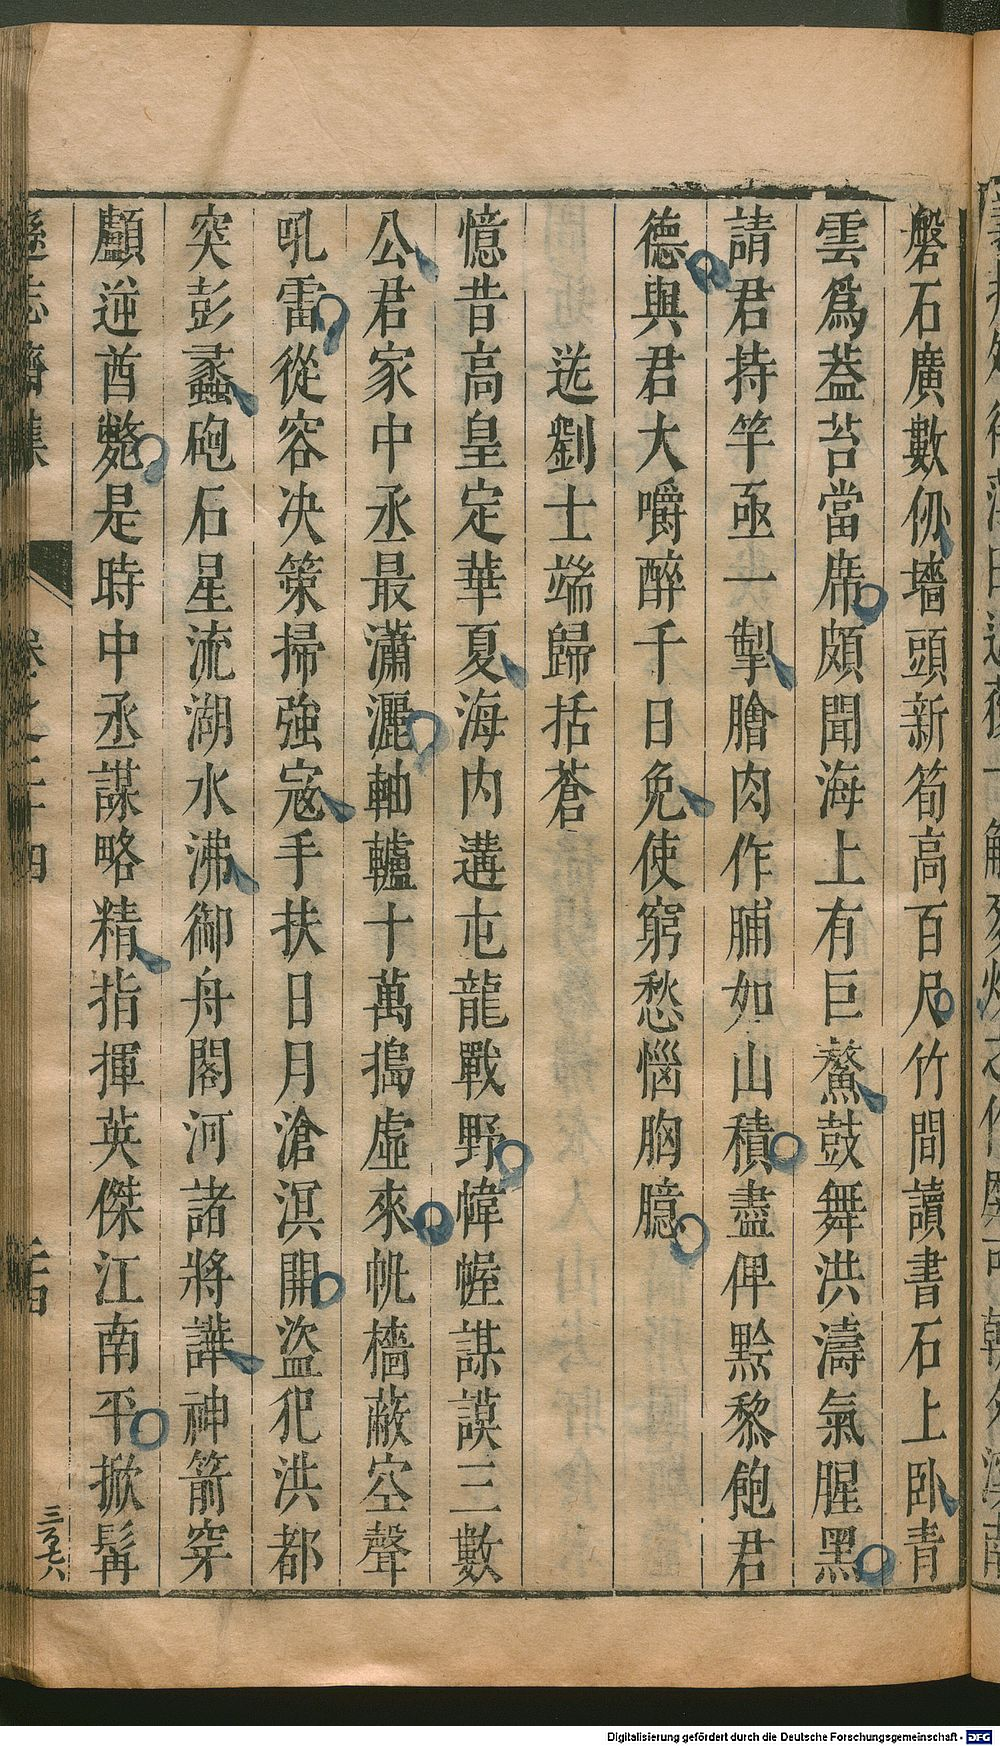 磐石廣數仞墻頭新筍高百尺竹間讀書石上卧青
雲爲葢苔當席頗聞海上有巨鰲鼓舞洪濤氣腥黑
請君持竿亟一掣膾肉作脯如山積盡俾黔黎飽君
德與君大嚼醉千日免使窮愁惱胸臆
送劉士端歸括蒼
憶昔高皇定華夏海内遘屯龍戰野幃幄謀謨三數
公君家中丞最瀟灑軸轤十萬搗虛來帆檣蔽空聲
吼雷從容决策掃強寇手扶日月滄溟開盜犯洪都
突彭蠡砲石星流湖水沸御舟閣河諸將譁神箭穿
顱逆酋斃是時中丞謀略精指揮英傑江南平掀髯
遜志齋集
卷之二十四
二十四
三百六
Digitalisierung gefördert durch die Deutsche Forschungsgemeinschaft - DFG